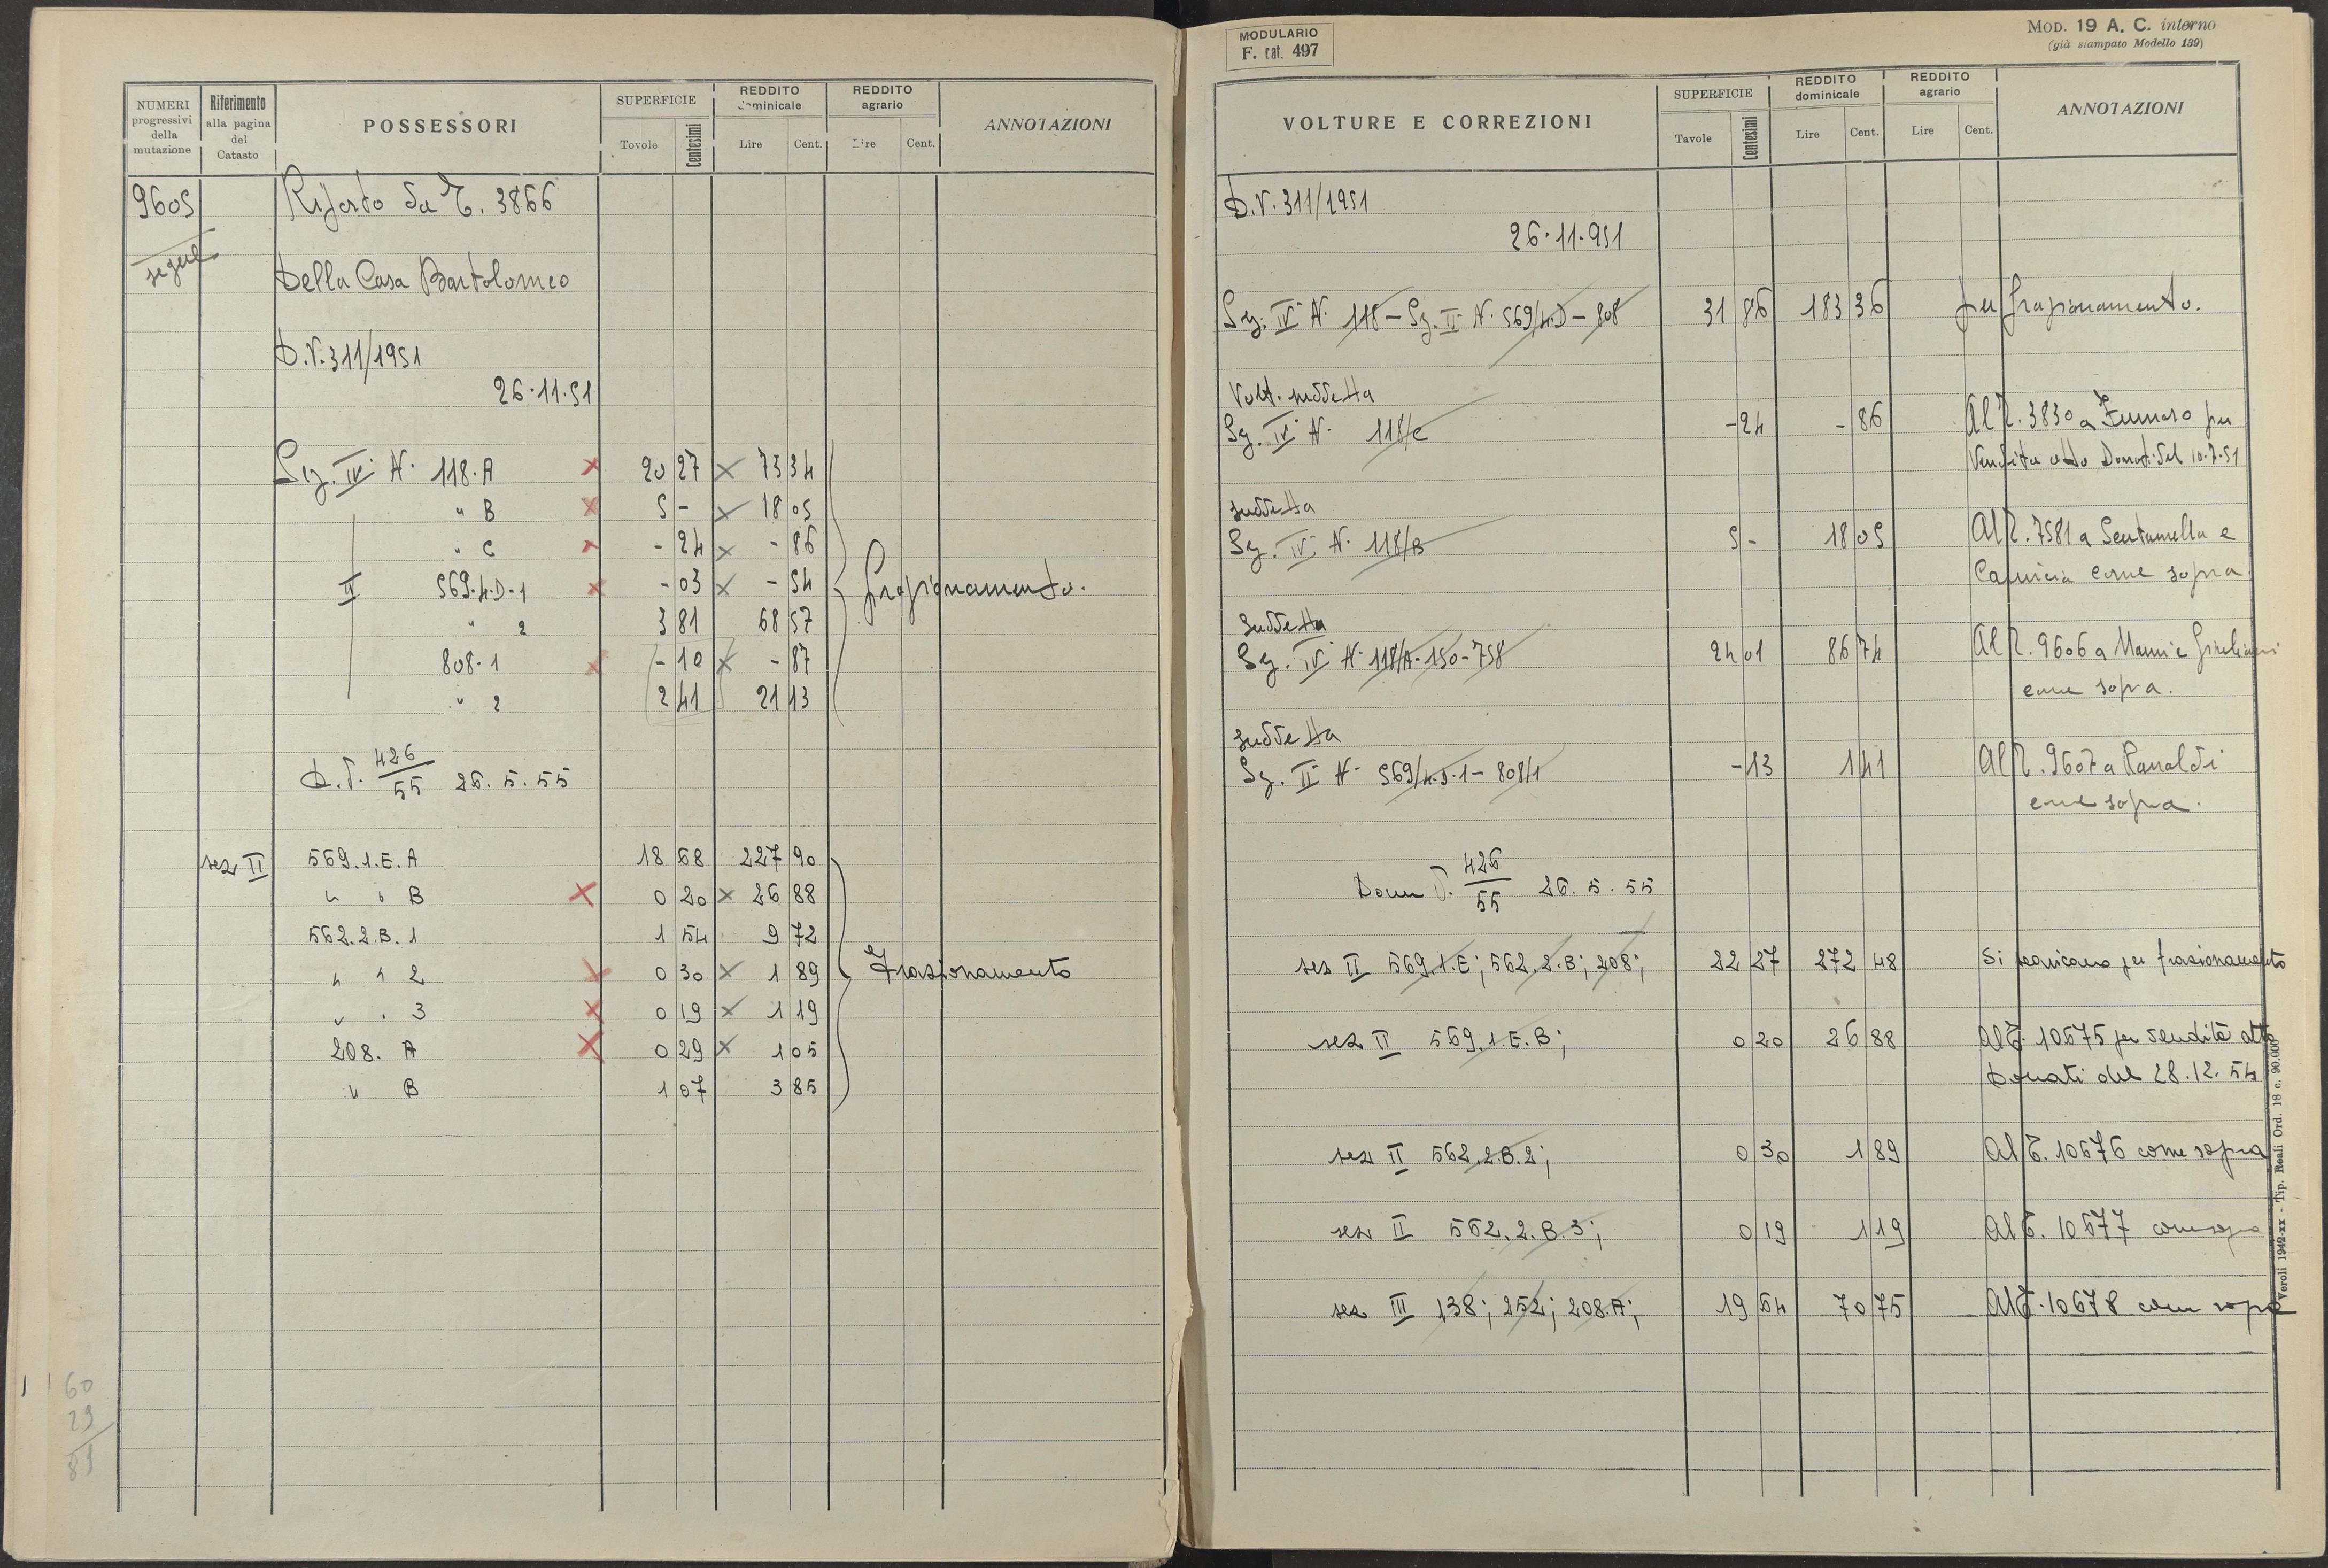 NUMERI progressivi della mutazione
Riferimento alla pagina del Catasto
POSSESSORI
SUPERFICIE Tovole Centesimi
REDDITO dominicale Lire Cent.
REDDITO agrario Lire Cent.
ANNOTAZIONI
9605 Riporto da T. 3866
segue
Della Casa Bartolomeo
D.V. 311/1951
26.11.51
Sez. IV N. 118.A 20 27 73 34
" B 5 - 18 05
" C - 24 - 86
II 569.4.D.1 - 03 - 54
" 2 3 81 68 57
808.1 - 10 - 87
" 2 2 41 21 13
frazionamento.
D.V. 426/55 26.5.55
sez II 569.1.E.A 18 68 227 90
" " B 0 20 26 88
562.2.B.1 1 54 9 72
" " 2 0 30 1 89
" " 3 0 19 1 19
208. A 0 29 1 05
" B 1 07 3 85
Frazionamento
60
29
89
MODULARIO
F. cat. 497
MOD. 19 A. C. interno
(già stampato Modello 139)
VOLTURE E CORREZIONI
SUPERFICIE Tavole Centesimi
REDDITO dominicale Lire Cent.
REDDITO agrario Lire Cent.
ANNOTAZIONI
D.V. 311/1951
26.11.951
Sez. IV N. 118 - Sez. II N. 569/4.D - 808 31 86 183 36 per frazionamento.
Volt. suddetta
Sez. IV N. 118/C - 24 - 86 Al T. 3830 a Fumaso per
Vendita atto Donati del 10.7.51
suddetta
Sez. IV N. 118/B 5 - 18 05 Al T. 7581 a Sentamella e
come sopra
suddetta
Sez. IV N. 118/A - 150 - 758 24 01 86 74 Al T. 9606 a
come sopra.
suddetta
Sez. II N. 569/4.D.1 - 808/1 - 13 1 41 Al T. 9607 a Ranaldi
come sopra.
Dom V. 426/55 26.5.55
sez II 569.1.E; 562.2.B; 208; 22 27 272 48 Si scaricano per frazionamento
sez II 569.1.E.B; 0 20 26 88 Al T. 10675 per vendita atto
Donati del 28.12.54
sez II 562.2.B.2; 0 30 1 89 Al T. 10676 come sopra
sez II 562.2.B.3; 0 19 1 19 Al T. 10677 come sopra
sez III 138; 252; 208.A; 19 64 70 75 Al T. 10678 come sopra
Veroli 1942-XX - Tip. Reali Ord. 18 c. 90.000